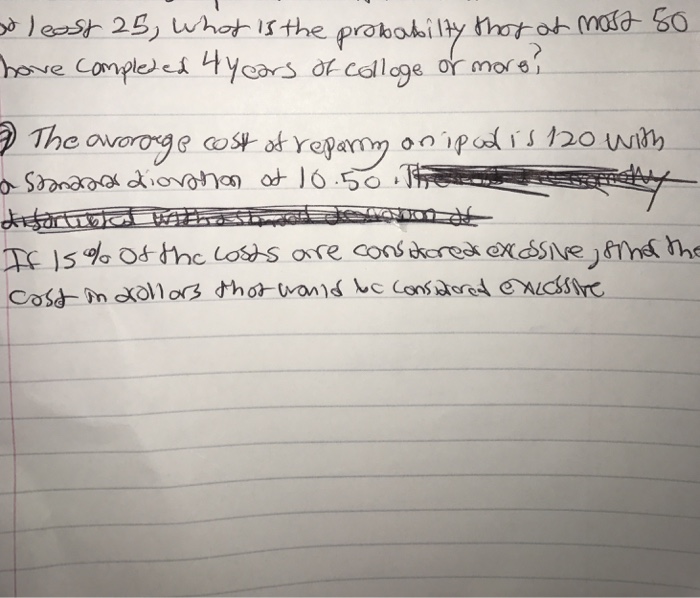 at least 25, what is the probabilty that at most 50
have completed 4 years of colloge or more?
The avorage cost of reparing an ipad is 120 with
a standard diavation of 10.50.
If 15% of the costs are considored excessive, find the
cost in dollars that would be considored excessive